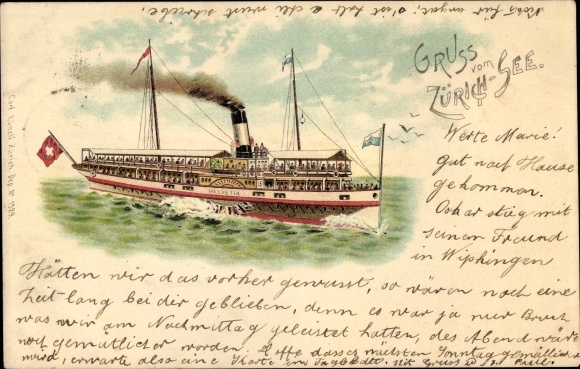 Nichts für ungut; s'ist halt a chli wüest schriebe;
GRUSS vom
ZÜRICH-SEE.
Carl Künzli, Zürich, Dep. 1909.
HELVETIA
Werte Marie!
gut nach Hause
gekommen.
Oskar stieg mit
seinem Freund
in Wiphingen
Hätten wir das vorher gewusst, so wären noch eine
Zeit lang bei dir geblieben, denn es war ja nur Bruch
was wir am Nachmittag geleistet hatten, des Abend wäre
noch gemütlicher worden. Hoffe dass es nächsten Sonntag gemütlicher
wird, erwarte also eine Karte im Tagblatt. Mit Gruss